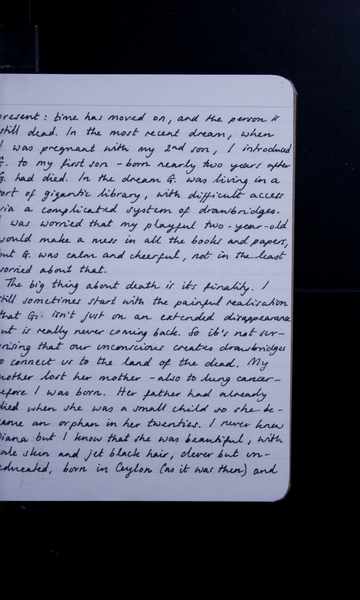 present: time has moved on, and the person is
still dead. In the most recent dream, when
I was pregnant with my 2nd son, I introduced
G. to my first son - born nearly two years after
G. had died. In the dream G. was living in a
sort of gigantic library, with difficult access
via a complicated system of drawbridges.
I was worried that my playful two-year-old
would make a mess in all the books and papers,
but G. was calm and cheerful, not in the least
worried about that.
The big thing about death is its finality. I
still sometimes start with the painful realisation
that G. isn't just on an extended disappearance
but is really never coming back. So it's not sur-
prising that our unconscious creates drawbridges
to connect us to the land of the dead. My
mother lost her mother - also to lung cancer -
before I was born. Her father had already
died when she was a small child so she be-
came an orphan in her twenties. I never knew
Diana but I know that she was beautiful, with
pale skin and jet black hair, clever but un-
educated, born in Ceylon (as it was then) and